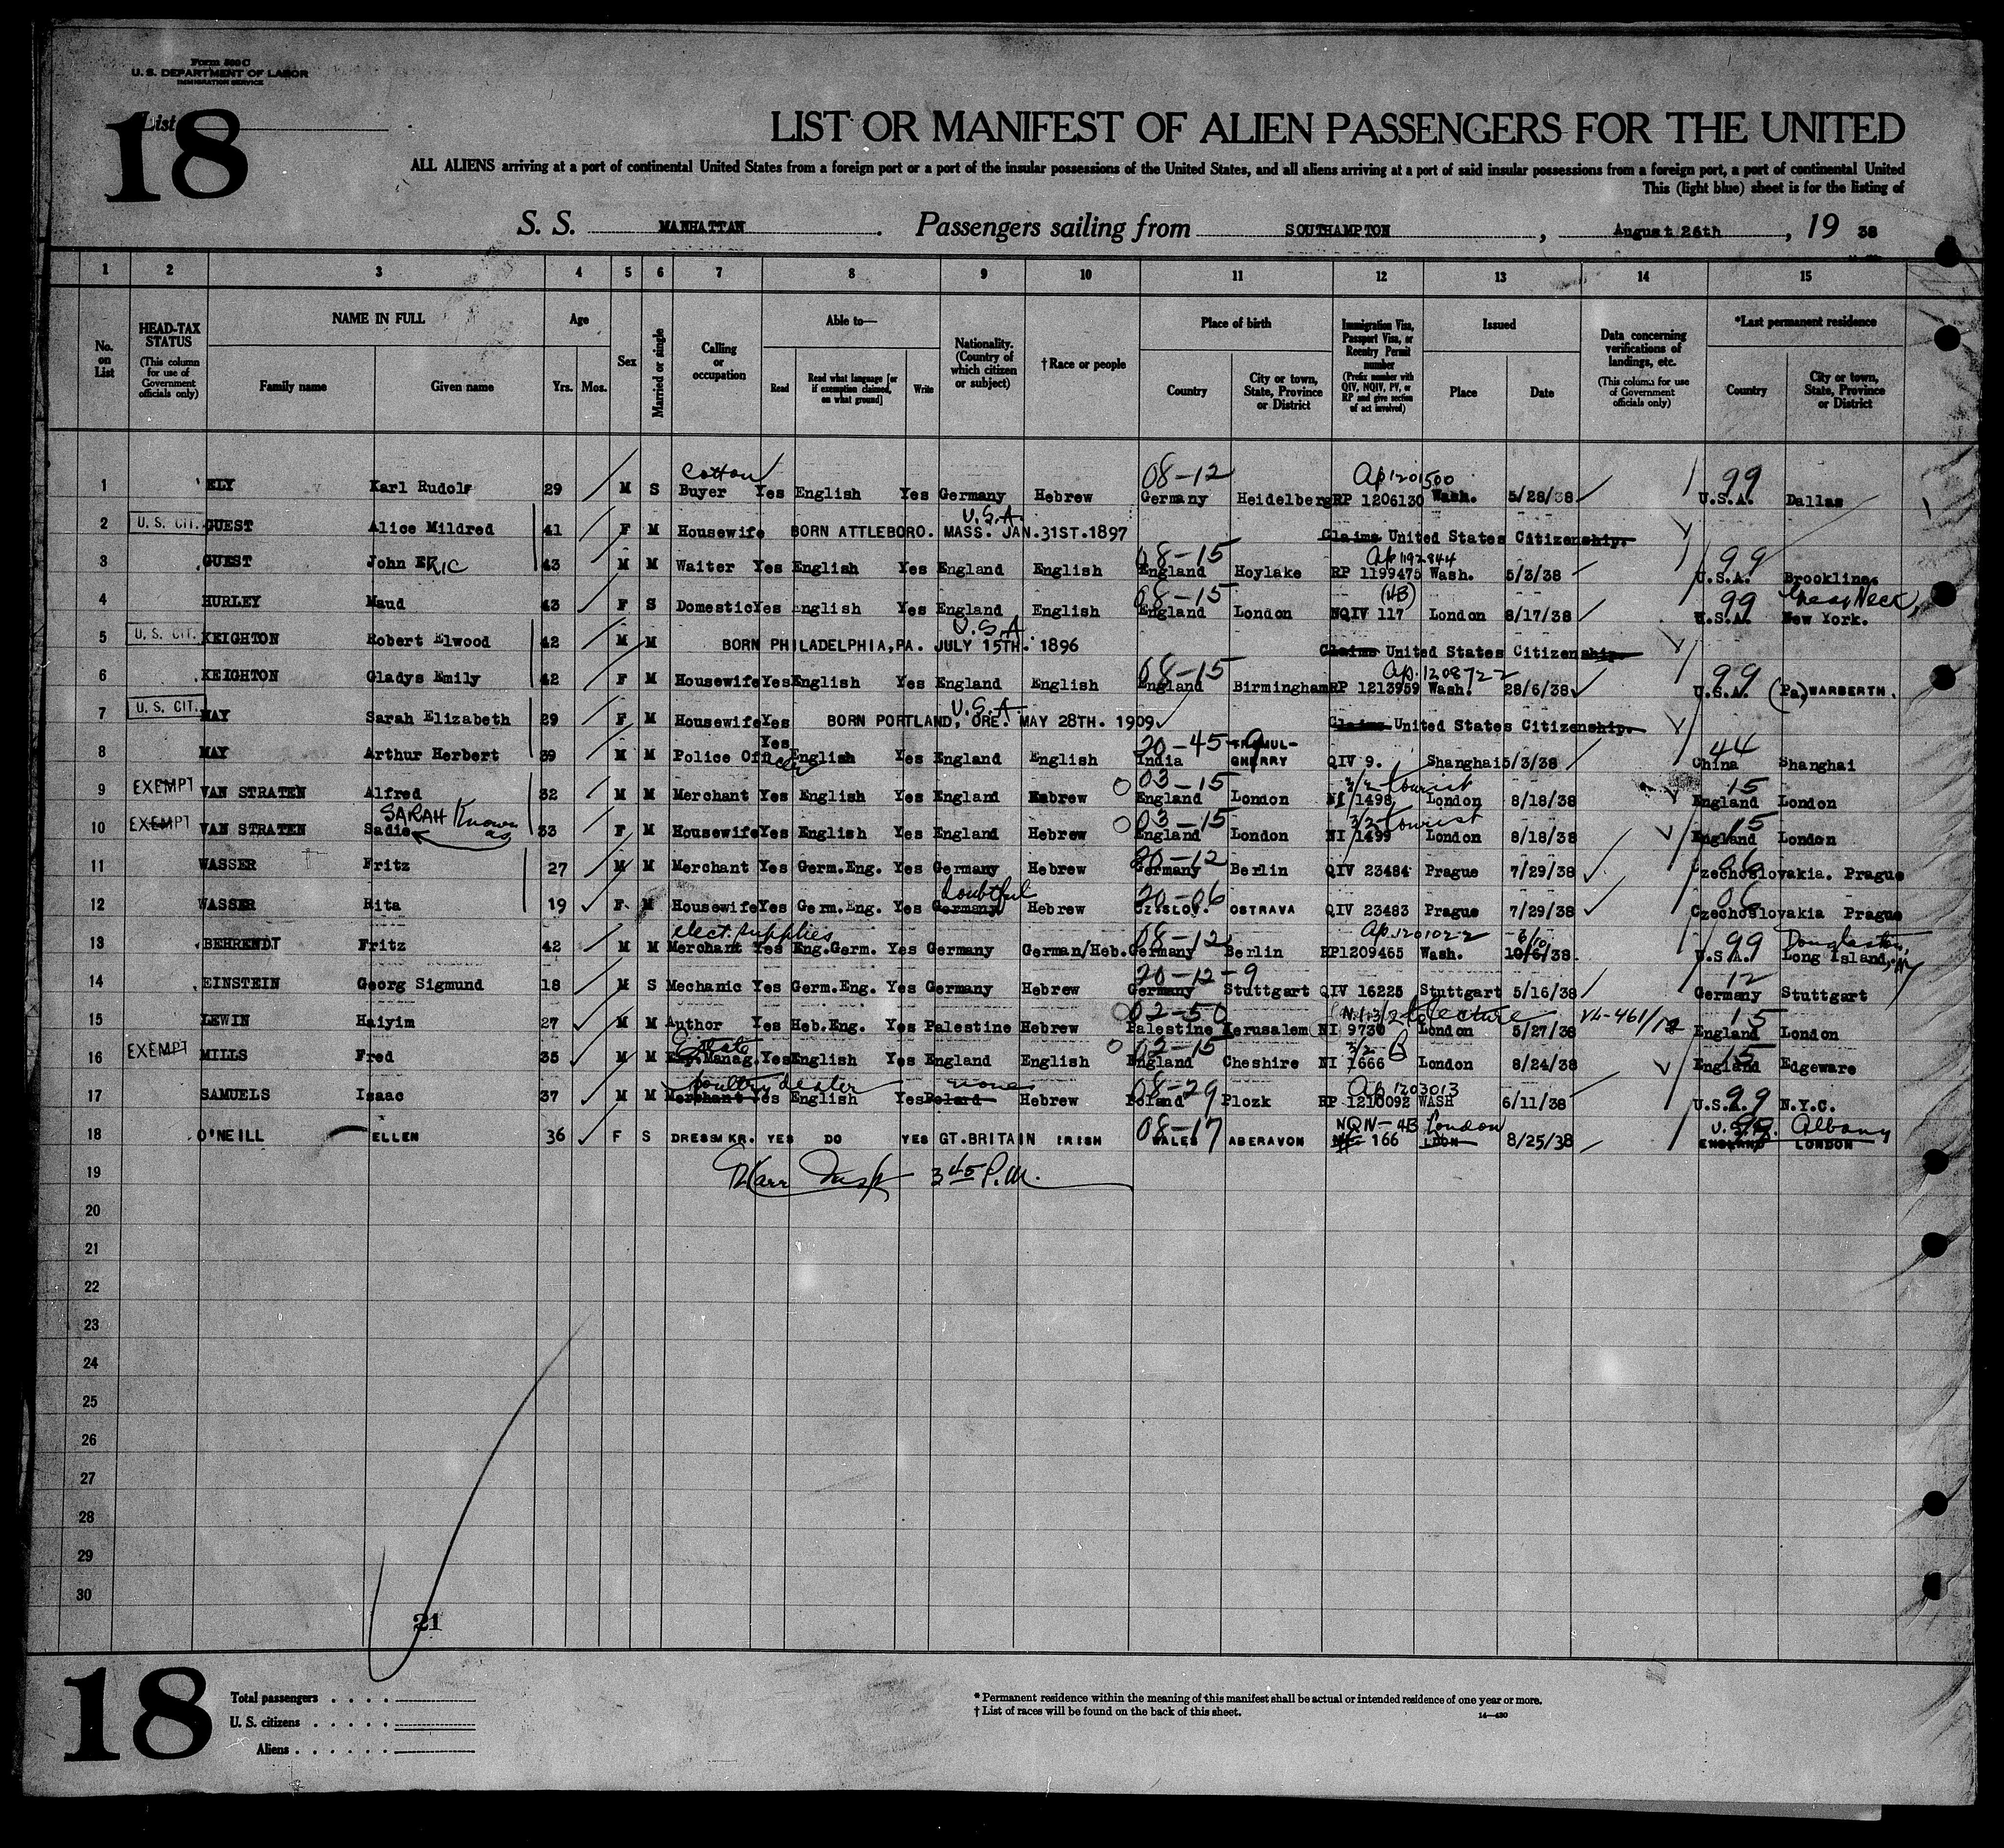 Form 500 C
U. S. DEPARTMENT OF LABOR
IMMIGRATION SERVICE
List 18
LIST OR MANIFEST OF ALIEN PASSENGERS FOR THE UNITED
ALL ALIENS arriving at a port of continental United States from a foreign port or a port of the insular possessions of the United States, and all aliens arriving at a port of said insular possessions from a foreign port, a port of continental United
This (light blue) sheet is for the listing of
S. S. MANHATTAN. Passengers sailing from SOUTHAMPTON, August 26th, 19 38
1 2 3 4 5 6 7 8 9 10 11 12 13 14 15
No. on List
HEAD-TAX STATUS (This column for use of Government officials only)
NAME IN FULL Family name Given name
Age Yrs. Mos.
Sex
Married or single
Calling or occupation
Able to— Read Read what language [or if exemption claimed, on what ground] Write
Nationality. (Country of which citizen or subject)
†Race or people
Place of birth Country City or town, State, Province or District
Immigration Visa, Passport Visa, or Reentry Permit number (Prefix number with QIV, NQIV, PV, or RP and give section of act involved)
Issued Place Date
Data concerning verifications of landings, etc. (This column for use of Government officials only)
*Last permanent residence Country City or town, State, Province or District
Cotton 08-12 Ap 1201500 99
1 ELY Karl Rudolf 29 M S Buyer Yes English Yes Germany Hebrew Germany Heidelberg RP 1206130 Wash. 5/28/38 U.S.A. Dallas
U.S.A
2 U. S. CIT. GUEST Alice Mildred 41 F M Housewife BORN ATTLEBORO. MASS. JAN.31ST.1897 Claims United States Citizenship.
08-15 Ap 1192844 99
3 GUEST John ERIC 43 M M Waiter Yes English Yes England English England Hoylake RP 1199475 Wash. 5/3/38 U.S.A. Brookline.
08-15 (4B) 99 Great Neck,
4 HURLEY Maud 43 F S Domestic Yes English Yes England English England London NQIV 117 London 8/17/38 U.S.A. New York.
U.S.A
5 U. S. CIT. KEIGHTON Robert Elwood 42 M M BORN PHILADELPHIA,PA. JULY 15TH. 1896 Claims United States Citizenship.
08-15 Ap. 1208722 99
6 KEIGHTON Gladys Emily 42 F M Housewife Yes English Yes England English England Birmingham RP 1213959 Wash. 28/6/38 U.S.A. (Pa.) WARBERTH.
U.S.A.
7 U. S. CIT. MAY Sarah Elizabeth 29 F M Housewife Yes BORN PORTLAND, ORE. MAY 28TH. 1909 Claims United States Citizenship.
20-45-9 44
8 MAY Arthur Herbert 39 M M Police Officer Yes English Yes England English India QIV 9. Shanghai 5/3/38 China Shanghai
03-15 3/2 tourist 15
9 EXEMPT VAN STRATEN Alfred 32 M M Merchant Yes English Yes England Hebrew England London NI 1498 London 8/18/38 England London
SARAH Known as 03-15 3/2 tourist 15
10 EXEMPT VAN STRATEN Sadie 33 F M Housewife Yes English Yes England Hebrew England London NI 1499 London 8/18/38 England London
20-12 06
11 WASSER Fritz 27 M M Merchant Yes Germ.Eng. Yes Germany Hebrew Germany Berlin QIV 23484 Prague 7/29/38 Czechoslovakia. Prague
Doubtful 20-06 06
12 WASSER Rita 19 F M Housewife Yes Germ.Eng. Yes Germany Hebrew CZ.SLOV. OSTRAVA QIV 23483 Prague 7/29/38 Czechoslovakia Prague
elect. supplies 08-12 Ap. 1201022 6/10 99 Douglaston,
13 BEHRENDT Fritz 42 M M Merchant Yes Eng.Germ. Yes Germany German/Heb. Germany Berlin RP1209465 Wash. 10/6/38 U.S.A. Long Island, NY
20-12-9 12
14 EINSTEIN Georg Sigmund 18 M S Mechanic Yes Germ.Eng. Yes Germany Hebrew Germany Stuttgart QIV 16225 Stuttgart 5/16/38 Germany Stuttgart
02-50 N.I. 3/2 to lecture 15
15 LEWIN Haiyim 27 M M Author Yes Heb.Eng. Yes Palestine Hebrew Palestine Jerusalem NI 9730 London 5/27/38 England London
Estate 02-15 3/2 B 15
16 EXEMPT MILLS Fred 35 M M Manag. Yes English Yes England English England Cheshire NI 1666 London 8/24/38 England Edgeware
poultry dealer none 08-29 Ap 1203013 99
17 SAMUELS Isaac 37 M M Merchant Yes English Yes Poland Hebrew Poland Plozk RP 1210092 WASH 6/11/38 U.S.A. N.Y.C.
08-17 NQIV-4B London U.S.A. Albany
18 O'NEILL ELLEN 36 F S DRESSMKR. YES DO YES GT.BRITAIN IRISH WALES ABERAVON 166 LDON 8/25/38 ENGLAND LONDON
19 3 45 P.M.
20
21
22
23
24
25
26
27
28
29
30
21
18
Total passengers
U. S. citizens
Aliens
* Permanent residence within the meaning of this manifest shall be actual or intended residence of one year or more.
† List of races will be found on the back of this sheet.
14—430